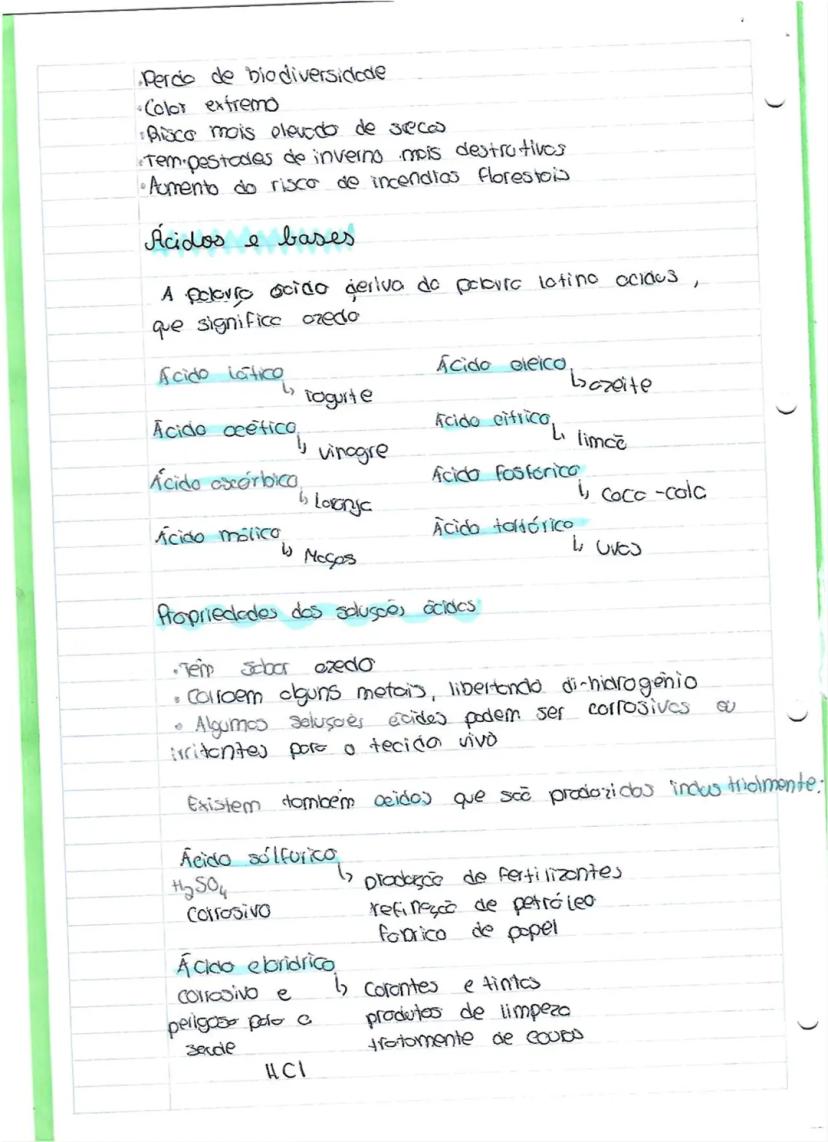 • Perda de biodiversidade
• Calor extremo
• Risco mais elevado de secas
• Tempestades de inverno mais destrutivas
• Aumento do risco de incendios florestais
Ácidos e bases
A palavra ácido deriva da palavra latina acidus,
que significa azedo
Ácido lático
↳ iogurte
Ácido oleico
↳ azeite
Ácido acético
↳ vinagre
Ácido cítrico
↳ limão
Ácido ascórbico
↳ Laranja
Ácido fosfórico
↳ Coca-cola
Ácido málico
↳ Maças
Ácido tartórico
↳ Uvas
Propriedades das soluções ácidas
• Têm sabor azedo
• Corroem alguns metais, libertando di-hidrogénio
• Algumas soluções ácidas podem ser corrosivas ou
irritantes para o tecido vivo
Existem também acidos que são produzidos industrialmente:
Ácido súlfurico
↳ produção de fertilizantes
H₂SO₄
Corrosivo
refinação de petróleo
fabrico de papel
Ácido clorídrico
↳ Corantes e tintas
corrosivo e
perigoso para a
saúde
produtos de limpeza
tratamento de couros
HCl